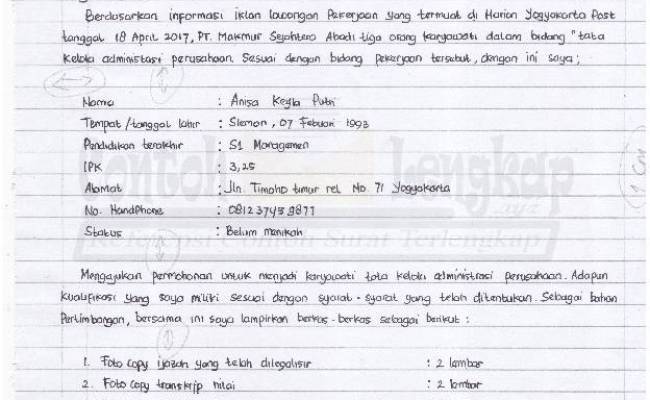 Berdasarkan informasi iklan lowongan Pekerjaan yang termuat di Harian Yogyakarta Post
tanggal 18 April 2017, PT. Makmur Sejahtera Abadi tiga orang karyawati dalam bidang "tata
kelola administasi perusahaan. Sesuai dengan bidang Pekerjaan tersebut, dengan ini saya;
Nama : Anisa Kegla Putri
Tempat/tanggal lahir : Sleman, 07 Febuari 1993
Pendidikan terakhir : S1 Managemen
IPK : 3,25
Alamat : Jln. Timoho timur rel No. 71 Yogyakarta
No. Handphone : 081237459877
Status : Belum menikah
1 cm
Mengajukan permohonan untuk menjadi karyawati tata kelola administrasi perusahaan. Adapun
kualifikasi yang saya miliki sesuai dengan syarat-syarat yang telah ditentukan. Sebagai bahan
Pertimbangan, bersama ini saya lampirkan berkas-berkas sebagai berikut :
1. Foto copy ijazah yang telah dilegalisir : 2 lembar
2. Foto copy transkrip nilai : 2 lembar
Contoh Lengkap
Referensi Contoh Surat Terlengkap